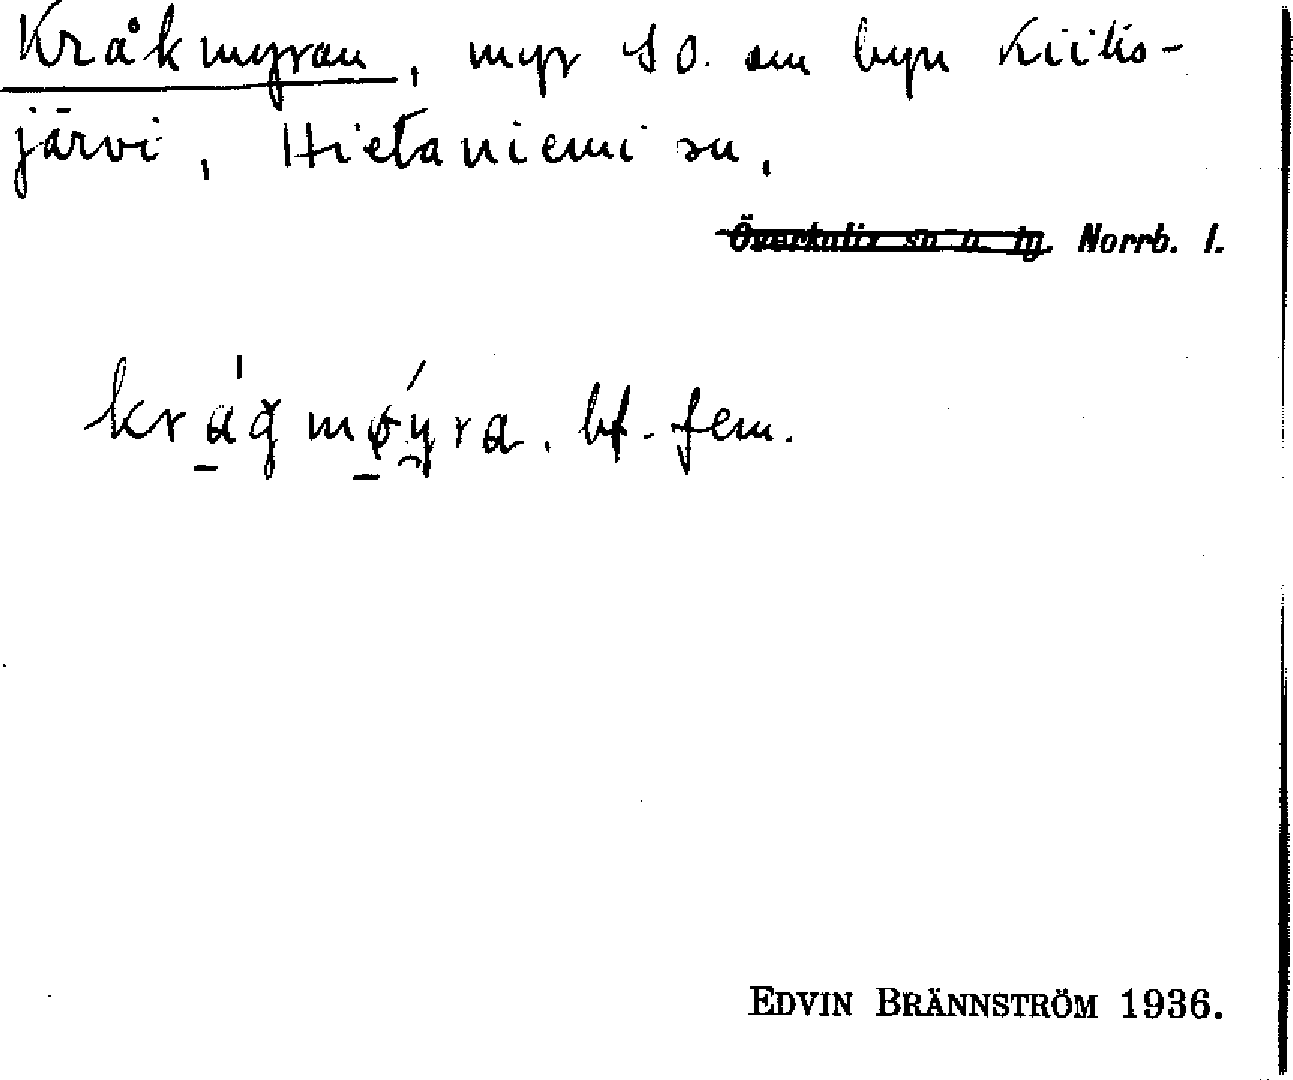 Kråkmyran, myr SO. om byn Kiitis-
järvi, Hietaniemi sn.
Överkalix sn o. tg. Norrb. l.
krágmǿyra. bf. fem.
EDVIN BRÄNNSTRÖM 1936.